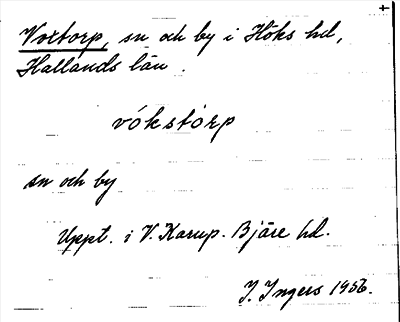 Voxtorp, sn och by i Höks hd,
Hallands län.
vókstòrp
sn och by
Uppt. i V. Karup. Bjäre hd.
I. Ingers 1956.